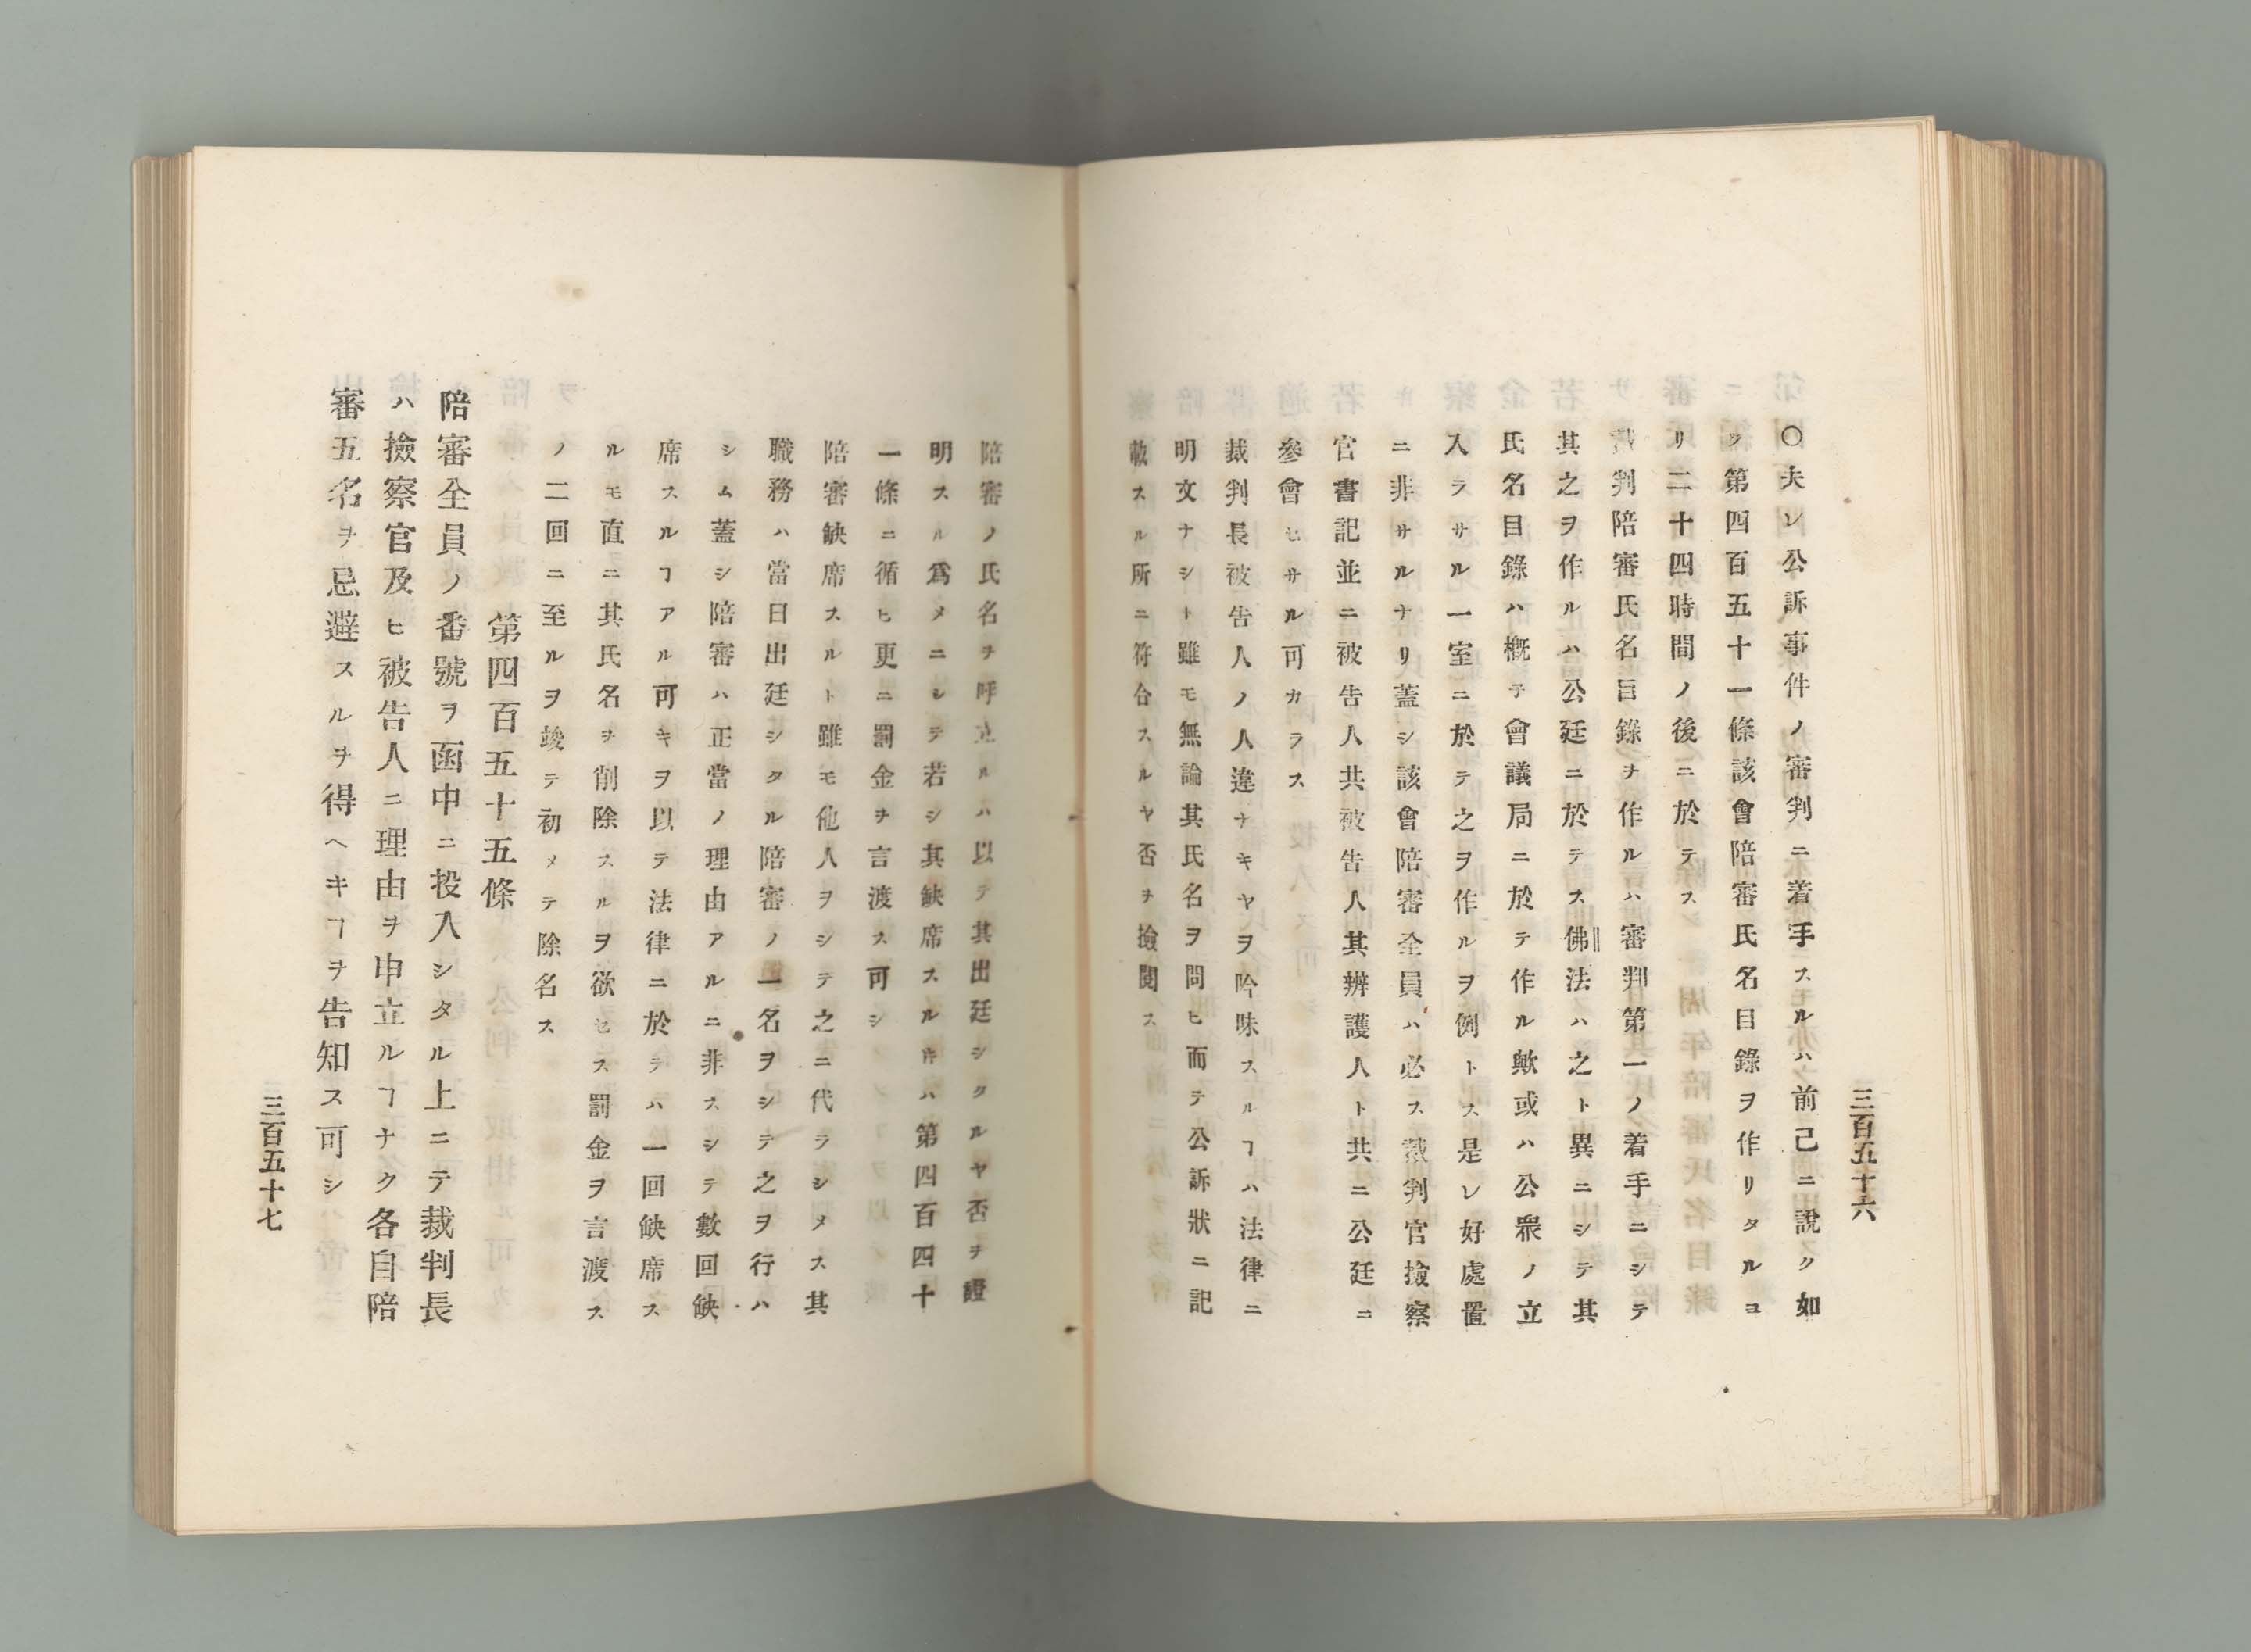 三百五十六
〇夫レ公訴事件ノ審判ニ着手スルハ前已ニ說ク如
ク第四百五十一條該會陪審氏名目錄ヲ作リタルヨ
リ二十四時間ノ後ニ於テス
裁判陪審氏名目錄チ作ルハ審判第一ノ着手ニシテ
其之ヲ作ルハ公廷ニ於テス佛法ハ之ト異ニシテ其
氏名目錄ハ槪テ會議局ニ於テ作ル歟或ハ公衆ノ立
入ラサル一室ニ於テ之ヲ作ルヲ例トス是レ好處置
ニ非サルナリ蓋シ該會陪審全員ハ必ス裁判官撿察
官書記並ニ被告人共被告人其辨護人ト共ニ公廷ニ
參會セサル可カラス
裁判長被告人ノ人違ナキヤヲ吟味スルヿハ法律ニ
明文ナシト雖モ無論其氏名ヲ問ヒ而テ公訴狀ニ記
載スル所ニ符合スルヤ否チ撿閱ス
陪審ノ氏名チ呼立ルハ以テ其出廷シタルヤ否チ證
明スル爲メニシテ若シ其缺席スルキハ第四百四十
一條ニ循ヒ更ニ罰金チ言渡ス可シ
陪審缺席スルト雖モ他人ヲシテ之ニ代ラシメス其
職務ハ當日出廷シタル陪審ノ一名ヲシテ之ヲ行ハ
シム蓋シ陪審ハ正當ノ理由アルニ非スシテ數回缺
席スルヿアル可キヲ以テ法律ニ於テハ一回缺席ス
ルモ直ニ其氏名チ削除スルヲ欲セス罰金ヲ言渡ス
ノ二回ニ至ルヲ竣テ初メテ除名ス
第四百五十五條
陪審全員ノ番號ヲ函中ニ投入シタル上ニテ裁判長
ハ撿察官及ヒ被告人ニ理由ヲ申立ルヿナク各自陪
審五名ヲ忌避スルヲ得ヘキヿヲ告知ス可シ
三百五十七